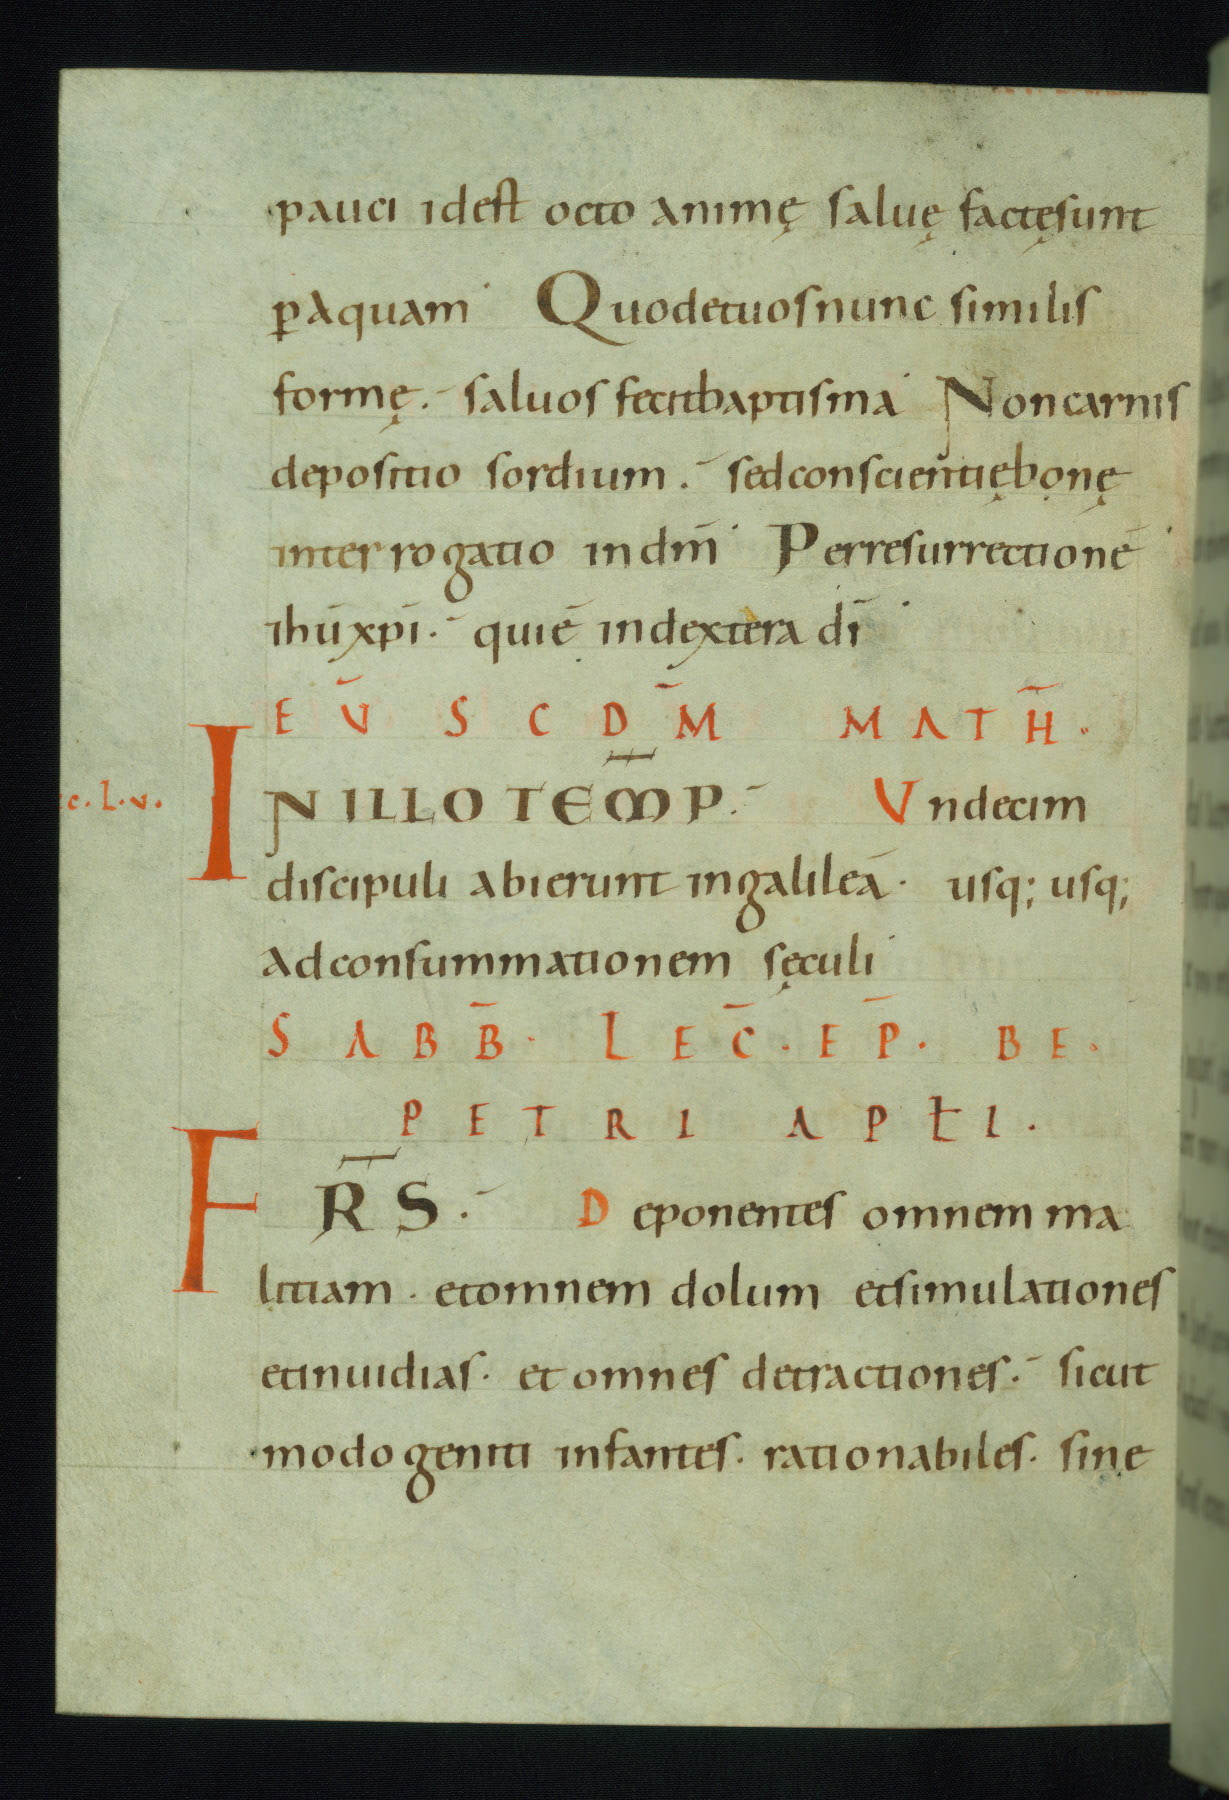 pauci idest octo animę saluę factęsunt
p̱aquam· Quodetuosnunc similis
formę. saluos fecitbaptisma· Noncarnis
depositio sordium. sedconscientiębonę
interrogatio indm̄· Perresurrectionē·
ihūxpī. quiē indextera dī·
EV̄ SCDM̄ MATH̄.
c.L.v. INILLOTEM̄P. Undecim
discipuli abierunt ingalileā. usq; usq;
adconsummationem sęculi·
SABB̄. LEC̄. EP̄. BE.
PETRI APŁI.
FR̄S. Deponentes omnem ma
litiam. etomnem dolum etsimulationes
etinuidias. et omnes detractiones. sicut
modo geniti infantes. rationabiles. sine